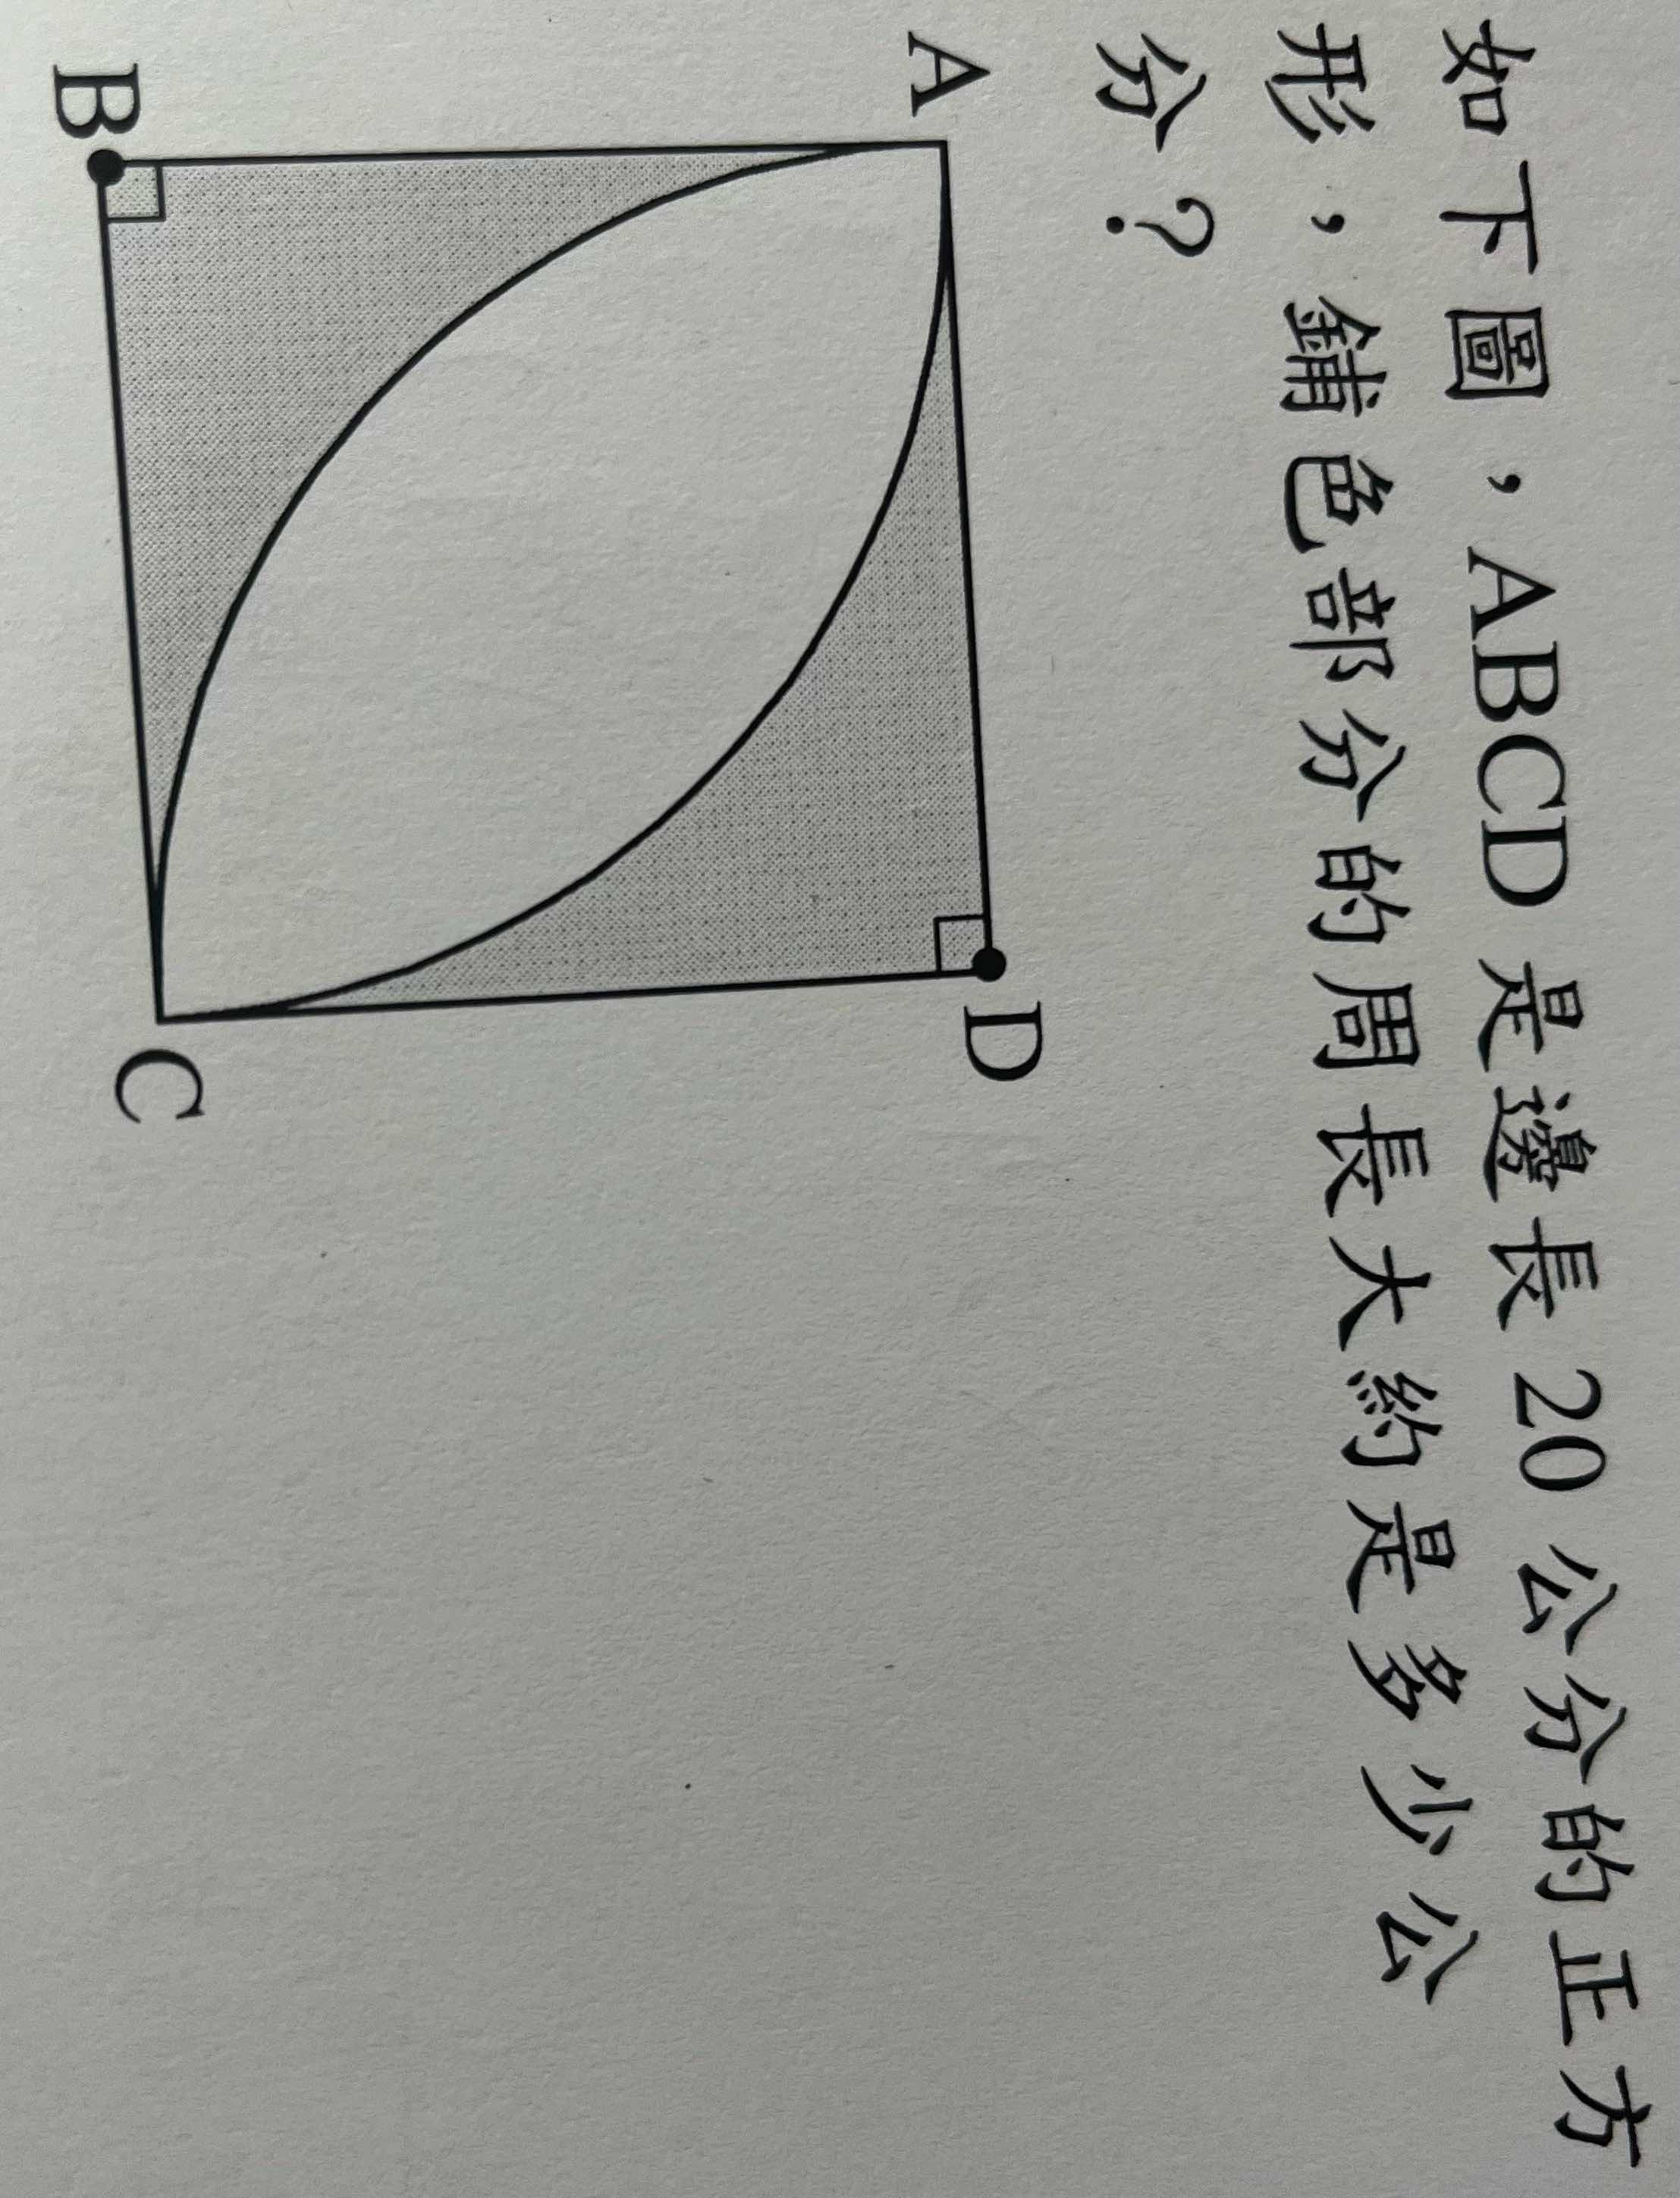 如下圖，ABCD 是邊長 20 公分的正方
形，鋪色部分的周長大約是多少公
分？
A
D
B
C